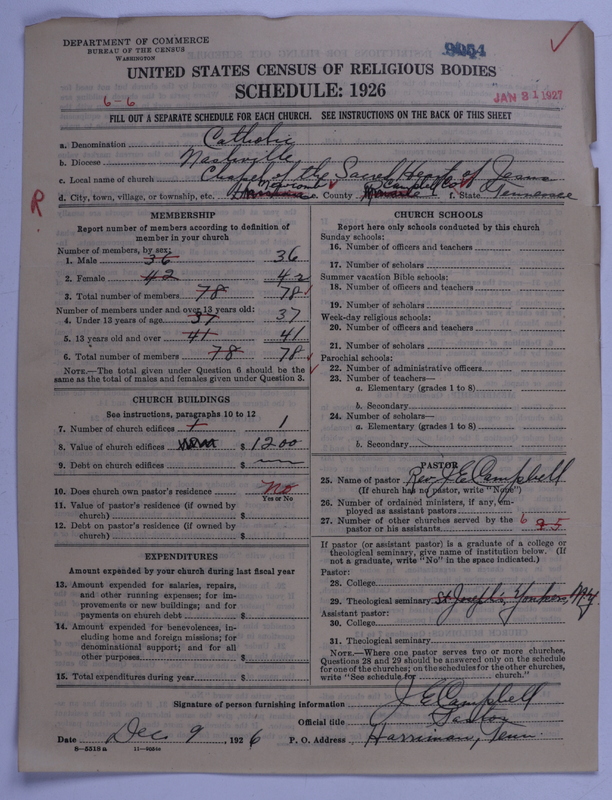 DEPARTMENT OF COMMERCE
BUREAU OF THE CENSUS
WASHINGTON
9054
UNITED STATES CENSUS OF RELIGIOUS BODIES
SCHEDULE: 1926
6-6
JAN 31 1927
FILL OUT A SEPARATE SCHEDULE FOR EACH CHURCH. SEE INSTRUCTIONS ON THE BACK OF THIS SHEET
a. Denomination Catholic
b. Diocese Nashville
c. Local name of church Chapel of the Sacred Heart of Jesus
R
d. City, town, village, or township, etc. e. County Campbell Co f. State Tennessee
MEMBERSHIP
Report number of members according to definition of
member in your church
Number of members, by sex:
1. Male 36 36
2. Female 42 42
3. Total number of members 78 78
Number of members under and over 13 years old:
4. Under 13 years of age 37 37
5. 13 years old and over 41 41
6. Total number of members 78 78
NOTE.—The total given under Question 6 should be the
same as the total of males and females given under Question 3.
CHURCH BUILDINGS
See instructions, paragraphs 10 to 12
7. Number of church edifices 1 1
8. Value of church edifices $ 1200
9. Debt on church edifices $
10. Does church own pastor's residence No
Yes or No
11. Value of pastor's residence (if owned by
church) $
12. Debt on pastor's residence (if owned by
church) $
EXPENDITURES
Amount expended by your church during last fiscal year
13. Amount expended for salaries, repairs,
and other running expenses; for im-
provements or new buildings; and for
payments on church debt $
14. Amount expended for benevolences, in-
cluding home and foreign missions; for
denominational support; and for all
other purposes $
15. Total expenditures during year $
CHURCH SCHOOLS
Report here only schools conducted by this church
Sunday schools:
16. Number of officers and teachers
17. Number of scholars
Summer vacation Bible schools:
18. Number of officers and teachers
19. Number of scholars
Week-day religious schools:
20. Number of officers and teachers
21. Number of scholars
Parochial schools:
22. Number of administrative officers
23. Number of teachers—
a. Elementary (grades 1 to 8)
b. Secondary
24. Number of scholars—
a. Elementary (grades 1 to 8)
b. Secondary
PASTOR
25. Name of pastor Rev. J. E. Campbell
(If church has no pastor, write "None")
26. Number of ordained ministers, if any, em-
ployed as assistant pastors
27. Number of other churches served by the 6
pastor or his assistants
If pastor (or assistant pastor) is a graduate of a college or
theological seminary, give name of institution below. (If
not a graduate, write "No" in the space indicated.)
Pastor:
28. College
29. Theological seminary St Joseph's Yonkers, N.Y.
Assistant pastor:
30. College
31. Theological seminary
NOTE.—Where one pastor serves two or more churches,
Questions 28 and 29 should be answered only on the schedule
for one of the churches; on the schedules for the other churches,
write "See schedule for church."
Signature of person furnishing information J E Campbell
Official title Pastor
Date Dec 9, 1926 P. O. Address Harriman, Tenn.
8—5518a